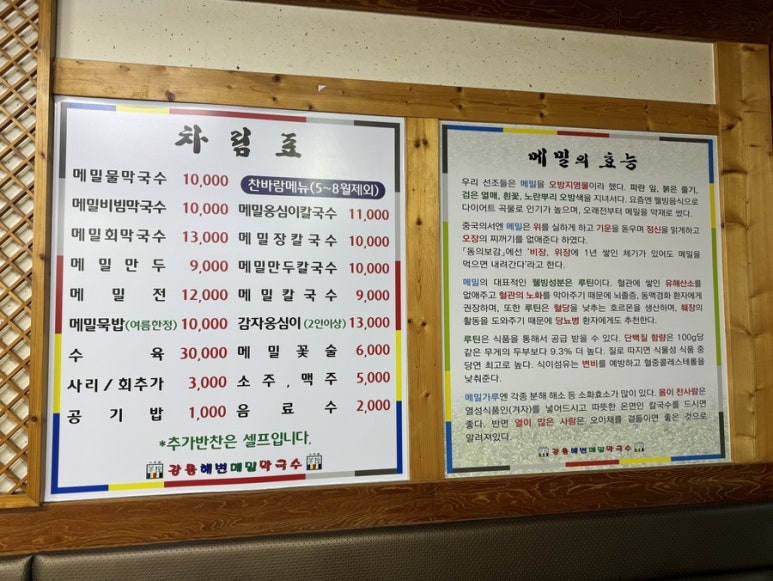 차림표
메밀물막국수 10,000
메밀비빔막국수 10,000
메밀회막국수 13,000
메밀만두 9,000
메밀전 12,000
메밀묵밥(여름한정) 10,000
수육 30,000
사리/회추가 3,000
공기밥 1,000
찬바람메뉴(5~8월제외)
메밀옹심이칼국수 11,000
메밀장칼국수 10,000
메밀만두칼국수 10,000
메밀칼국수 9,000
감자옹심이(2인이상) 13,000
메밀꽃술 6,000
소주,맥주 5,000
음료수 2,000
*추가반찬은 셀프입니다.
강릉해변메밀막국수
메밀의 효능
우리 선조들은 메밀을 오방지영물이라 했다. 파란 잎, 붉은 줄기,
검은 열매, 흰꽃, 노란뿌리 오방색을 지녀서다. 요즘엔 웰빙음식으로
다이어트 곡물로 인기가 높으며, 오래전부터 메밀을 약재로 썼다.
중국의서엔 메밀은 위를 실하게 하고 기운을 돋우며 정신을 맑게하고
오장의 찌꺼기를 없애준다 하였다.
「동의보감」에선 '비장, 위장에 1년 쌓인 체기가 있어도 메밀을
먹으면 내려간다'라고 한다.
메밀의 대표적인 웰빙성분은 루틴이다. 혈관에 쌓인 유해산소를
없애주고 혈관의 노화를 막아주기 때문에 뇌졸증, 동맥경화 환자에게
권장하며, 또한 루틴은 혈당을 낮추는 호르몬을 생산하며, 췌장의
활동을 도와주기 때문에 당뇨병 환자에게도 추천한다.
루틴은 식품을 통해서 공급 받을 수 있다. 단백질 함량은 100g당
같은 무게의 두부보다 9.3% 더 높다. 질로 따지면 식물성 식품 중
당연 최고로 높다. 식이섬유는 변비를 예방하고 혈중콜레스테롤을
낮춰준다.
메밀가루엔 각종 분해 해소 등 소화효소가 많이 있다. 몸이 찬사람은
열성식품인(겨자)를 넣어드시고 따뜻한 온면인 칼국수를 드시면
좋다. 반면 열이 많은 사람은 오이채를 곁들이면 좋은 것으로
알려져있다.
강릉해변메밀막국수